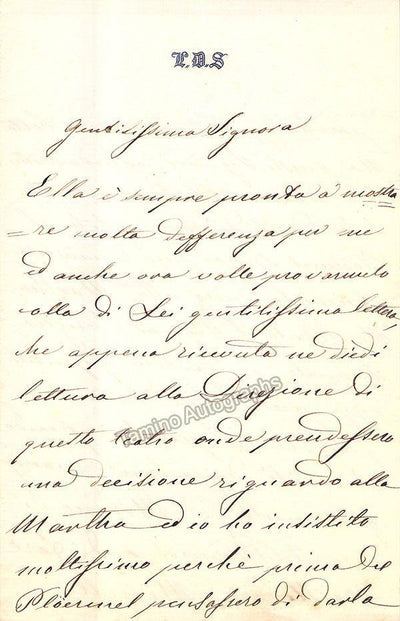 L.D.S
Gentilissima Signora
Ella è sempre pronta a mostra
=re molta defferenza per me
ed anche ora volle provarmelo
colla di Lei gentilissima lettera,
che appena ricevuta ne diedi
lettura alla Direzione di
Tamino Autographs
questo teatro onde prendessero
una decisione riguardo alla
Martha ed io ho insistito
moltissimo perchè prima del
Ploermel pensassero di darla